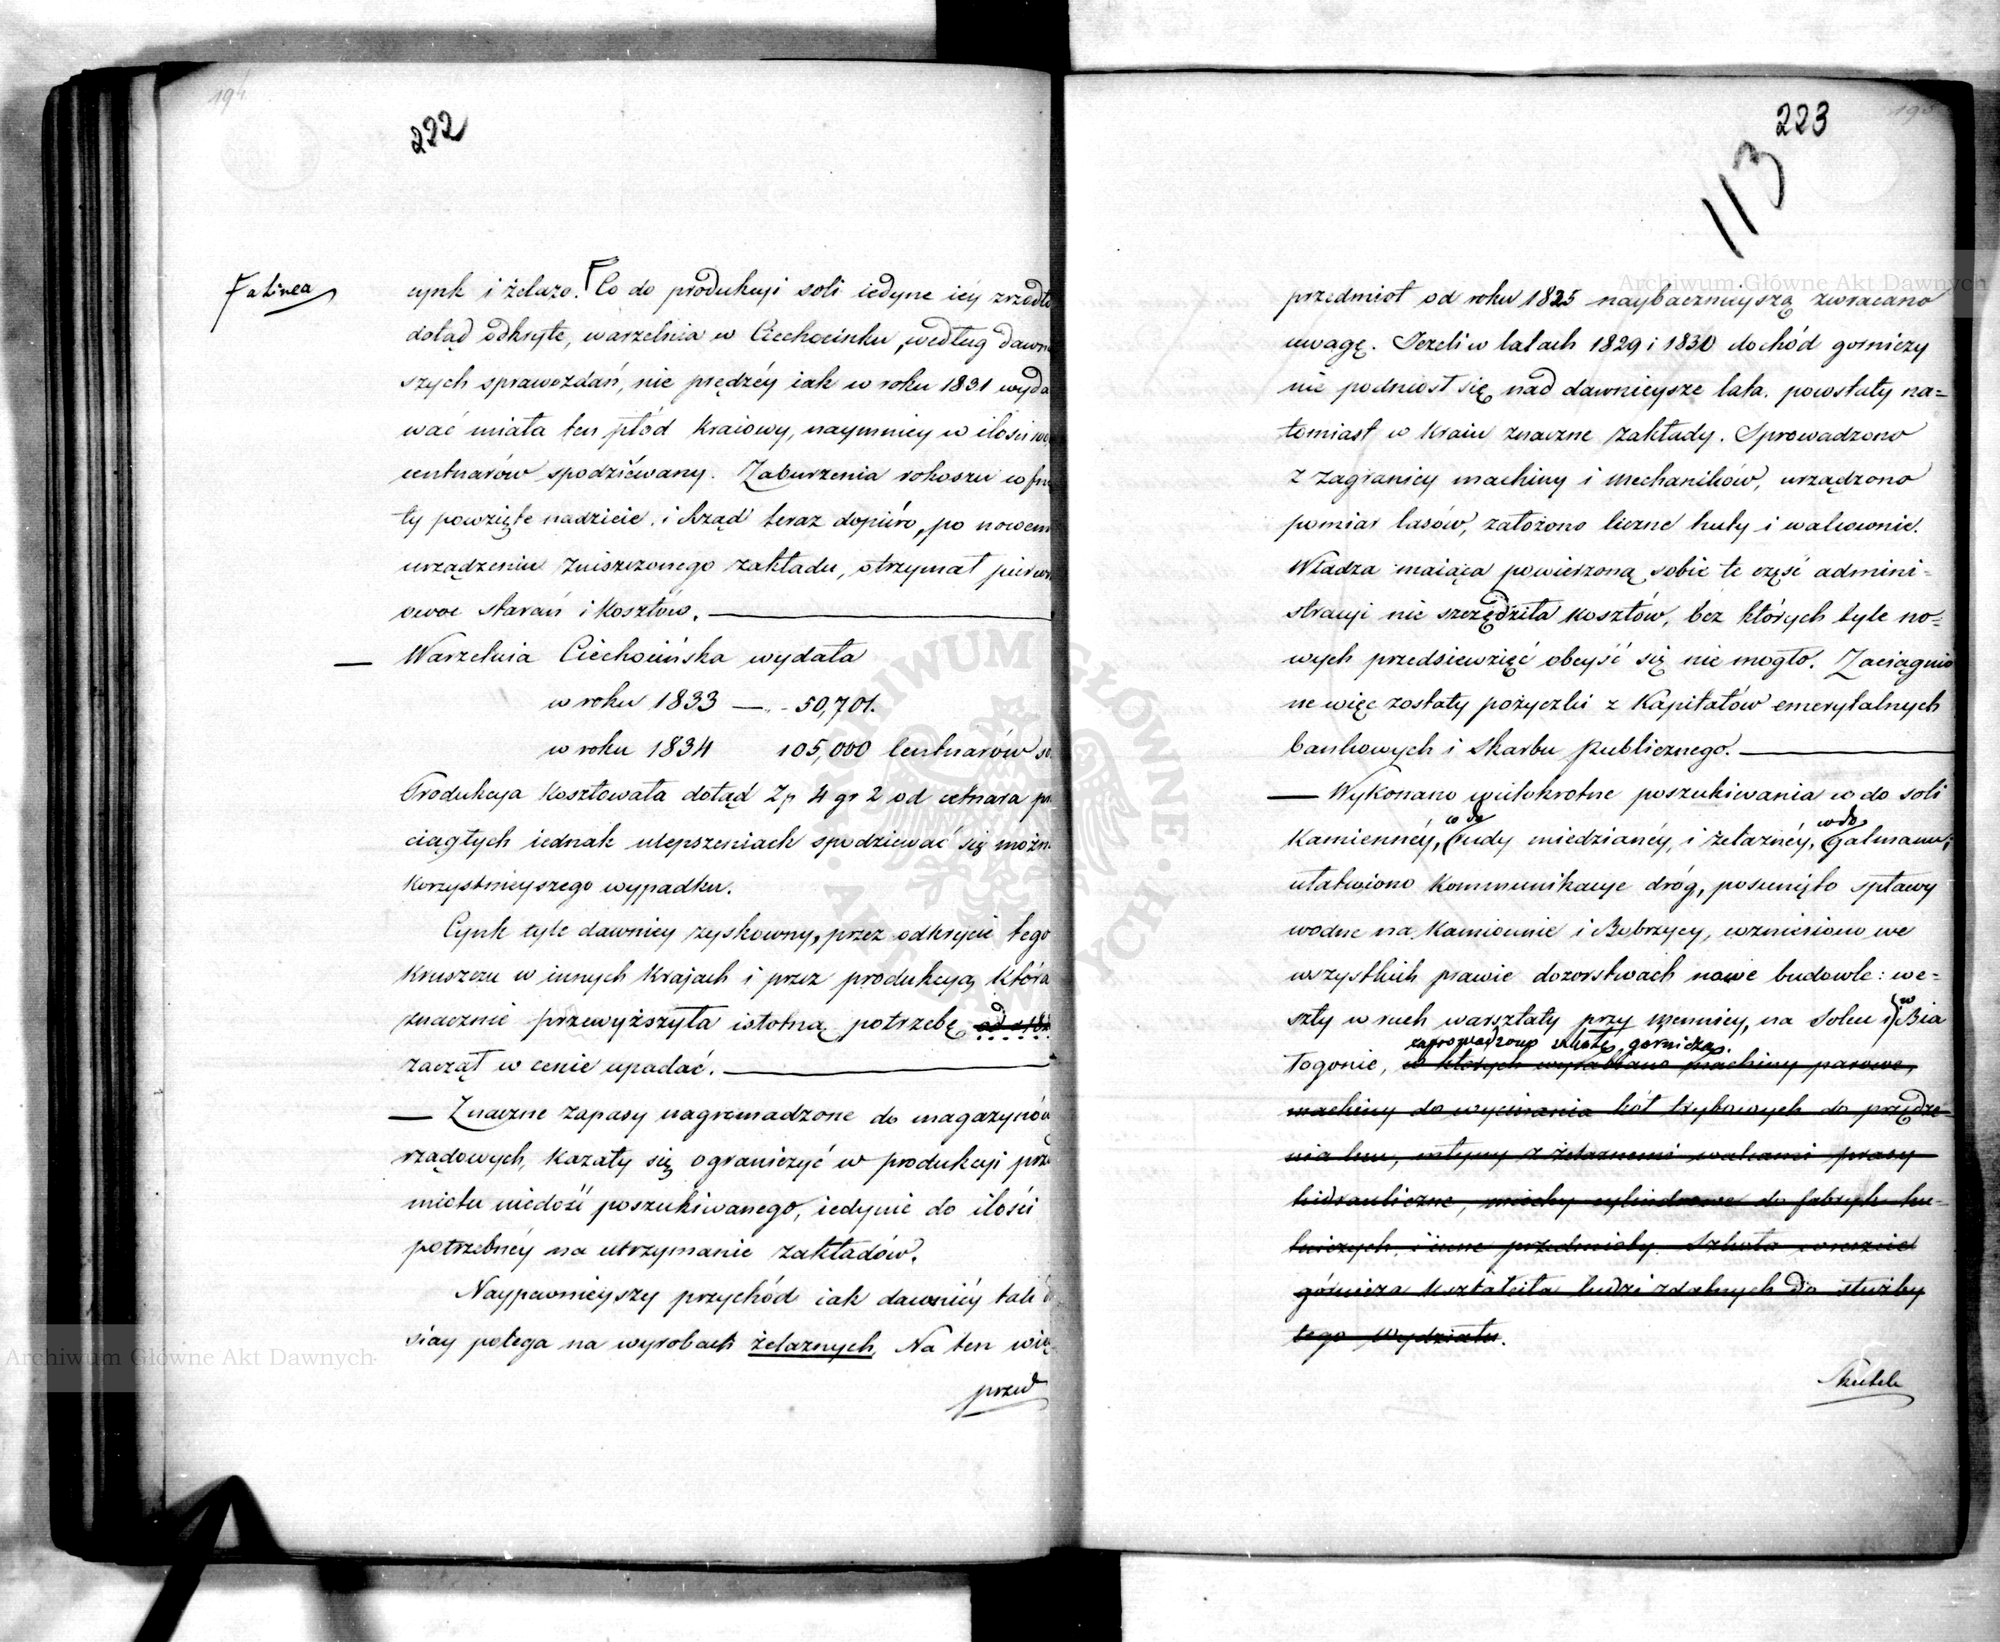 194
222
Fa Linea
cynk i żelazo. Co do produkcyi soli iedyne iéy zrzódło
dotąd odkryte, warzelnia w Ciechocinku, według dawn
szych sprawozdań, nie prędzéy iak w roku 1831 wyda
wać miała ten płód kraiowy, naymniey w ilości
centnarów spodziéwany. Zaburzenia rokoszu cofnę
ły powzięte nadzieie, i Rząd teraz dopiéro, po nowem
urządzeniu zniszczonego zakładu, otrzymał pierwszy
owoc starań i kosztów.
— Warzelnia Ciechocińska wydała
w roku 1833 — 50,701.
w roku 1834 105,000 Centnarów so
Produkcya kosztowała dotąd Zp 4 gr 2 od cetnara pr
ciągłych iednak ulepszeniach spodziewać się możn
korzystnieyszego wypadku.
Cynk tyle dawniey zyskowny, przez odkrycie tego
kruszczu w innych krajach i przez produkcyą, która
znacznie przewyższyła istotną potrzebę od r 183
zaczął w cenie upadać.
— Znaczne zapasy nagromadzone do magazynów
rządowych, kazały się ograniczyć w produkcyi prze
miotu niedość poszukiwanego, iedynie do ilości
potrzebnéy na utrzymanie zakładów.
Naypewnieyszy przychód iak dawniéy tak d
siay polega na wyrobach żelaznych. Na ten wię
przed
195
223
113
przedmiot od roku 1825 naybacznieyszą zwracano
uwagę. Jeżeli w latach 1829 i 1830 dochód gorniczy
nie podniosł się nad dawnieysze lata, powstały na=
tomiast w kraiu znaczne zakłady. Sprowadzono
z zagranicy machiny i mechaników, urządzono
pomiar lasów, założono liczne huty i walcownie.
Władza maiąca powierzoną sobie tę część admini=
stracyi nie szczędziła kosztów, bez których tyle no=
wych przedsięwzięć obeyść się nie mogło. Zaciągnio
ne więc zostały pożyczki z kapitałów emerytalnych
bankowych i skarbu publicznego.
— Wykonano wielokrotne poszukiwania co do soli
co do co do
kamiennéy, rudy miedzianéy, i żelaznéy, galmanu;
ułatwiono kommunikacye dróg, posunięto spławy
wodne na Kamionnie i Bobrzycy, wzniesiono we
wszystkich prawie dozorstwach nowe budowle: we=
szły w ruch warsztaty przy mennicy, na Solcu i w Bia
zaprowadzono szkołę gorniczą.
łogonie, w których wyrabiano machiny parowe,
machiny do wycinania kół trybowych do przędze=
nia lnu, młyny z żelaznemi walcami prasy
hidrauliczne, miechy cylindrowe do fabryk hu=
tniczych, i inne przedmioty. Szkoła wreszcie
górnicza kształciła ludzi zdatnych do służby
tego Wydziału.
Skutek
Archiwum Główne Akt Dawnych
Archiwum Główne Akt Dawnych
ARCHIWUM GŁÓWNE AKT DAWNYCH